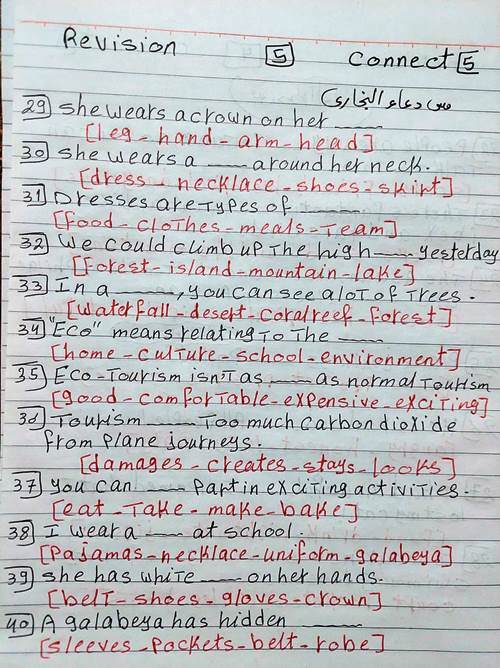 Revision 5 Connect 5
مس دعاء البخارى
29 she wears a crown on her ____
[leg - hand - arm - head]
30 she wears a ____ around her neck.
[dress - necklace - shoes - skirt]
31 Dresses are types of ____.
[food - clothes - meals - team]
32 We could climb up the high ____ yesterday
[forest - island - mountain - lake]
33 In a ____, you can see a lot of trees.
[waterfall - desert - coral reef - forest]
34 "Eco" means relating to the ____
[home - culture - school - environment]
35 Eco-tourism isn't as ____ as normal tourism
[good - comfortable - expensive - exciting]
36 Tourism ____ too much carbon dioxide
from plane journeys.
[damages - creates - stays - looks]
37 you can ____ part in exciting activities.
[eat - take - make - bake]
38 I wear a ____ at school.
[pajamas - necklace - uniform - galabeya]
39 she has white ____ on her hands.
[belt - shoes - gloves - crown]
40 A galabeya has hidden ____
[sleeves - pockets - belt - robe]